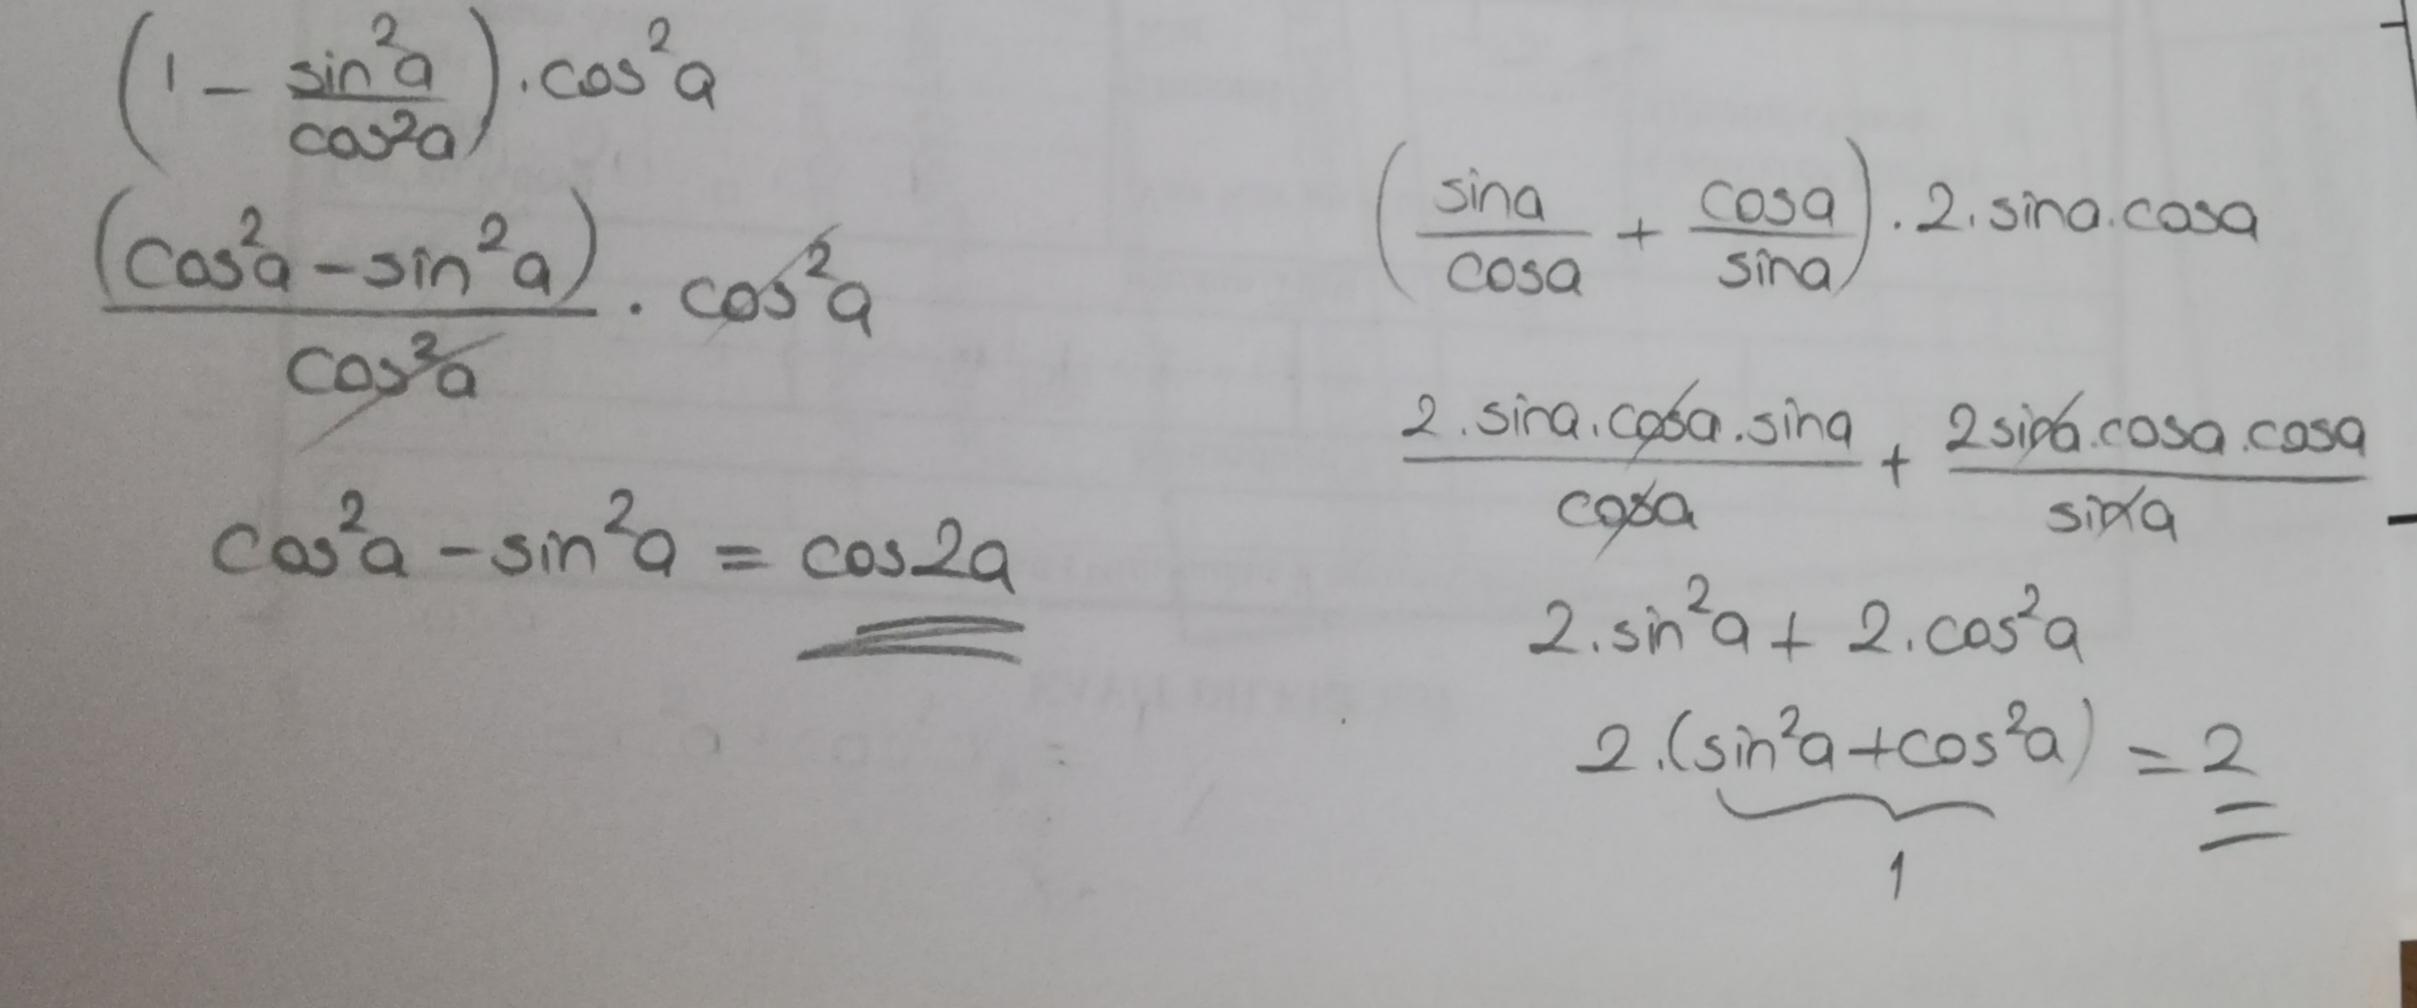 (1 - sin²a/cos²a) . cos²a
(cos²a - sin²a)/cos²a . cos²a
cos²a - sin²a = cos2a
(sina/cosa + cosa/sina) . 2. sina. cosa
2 . sina. cosa . sina/cosa + 2 sina. cosa . cosa/sina
2. sin²a + 2. cos²a
2.(sin²a + cos²a) = 2
1